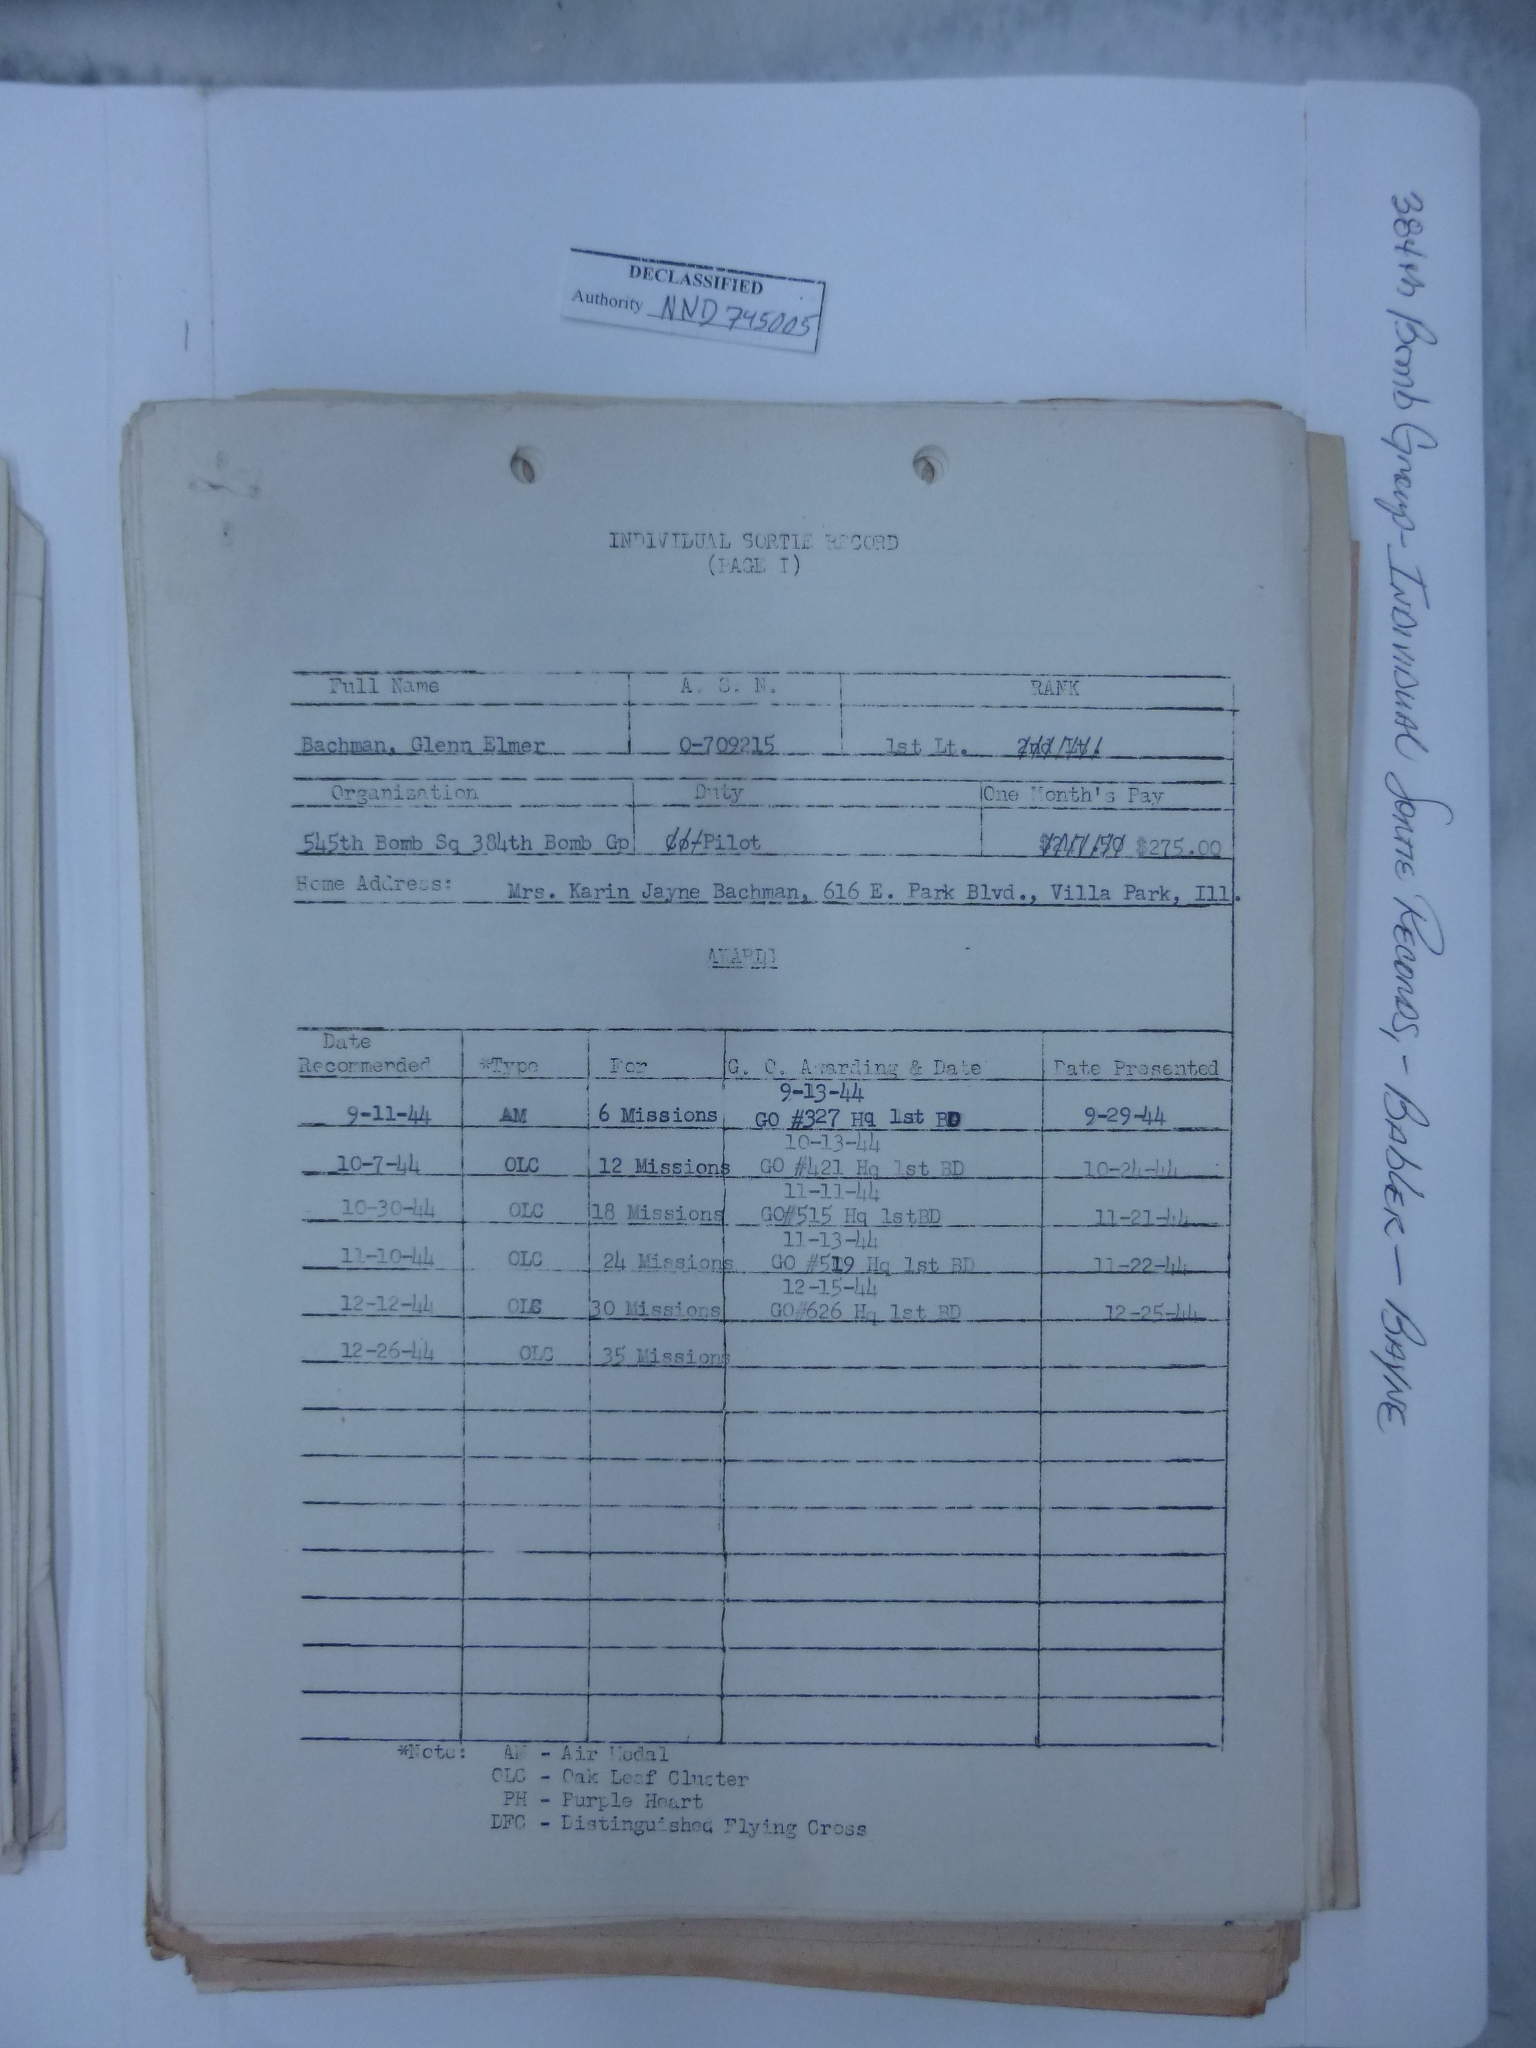 DECLASSIFIED
Authority NND 745005
384th Bomb Group - INDIVIDUAL SORTIE RECORDS, - BABLER — BAYNE
INDIVIDUAL SORTIE RECORD
(PAGE I)
Full Name A. S. N. RANK
Bachman, Glenn Elmer 0-709215 1st Lt.
Organization Duty One Month's Pay
545th Bomb Sq 384th Bomb Gp Pilot $275.00
Home Address: Mrs. Karin Jayne Bachman, 616 E. Park Blvd., Villa Park, Ill.
AWARDS
Date
Recommended *Type For G. O. Awarding & Date Date Presented
9-13-44
9-11-44 AM 6 Missions GO #327 Hq 1st BD 9-29-44
10-13-44
10-7-44 OLC 12 Missions GO #421 Hq 1st BD 10-24-44
11-11-44
10-30-44 OLC 18 Missions GO#515 Hq 1stBD 11-21-44
11-13-44
11-10-44 OLC 24 Missions GO #519 Hq 1st BD 11-22-44
12-15-44
12-12-44 OLC 30 Missions GO#626 Hq 1st BD 12-25-44
12-26-44 OLC 35 Missions
*Note: AM - Air Medal
OLC - Oak Leaf Cluster
PH - Purple Heart
DFC - Distinguished Flying Cross